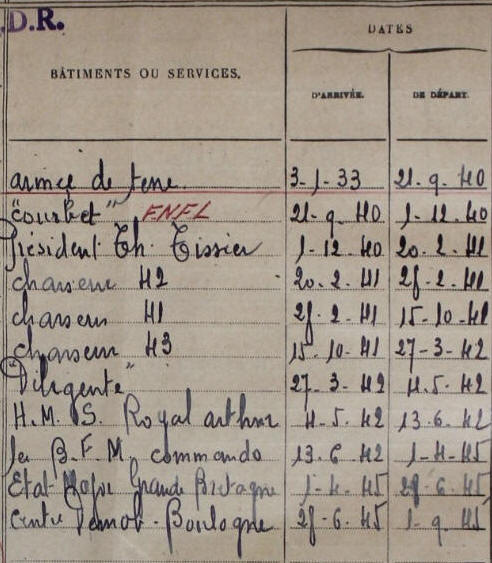 .D.R.
DATES
BÂTIMENTS OU SERVICES.
D'ARRIVÉE. DE DÉPART.
armée de terre 3-1-33 21-9-40
"Courbet" FNFL 21-9-40 1-12-40
Président Th. Tissier 1-12-40 20-2-41
chasseur 42 20-2-41 28-2-41
chasseur 41 28-2-41 15-10-41
chasseur 43 15-10-41 27-3-42
"Diligente" 27-3-42 4.5.42
H.M.S. Royal arthur 4-5-42 13-6-42
1er B.F.M. commando 13-6-42 1-4-45
Etat-Major Grande Bretagne 1-4-45 28-6-45
Centre Demob-Boulogne 28-6-45 1-9-45